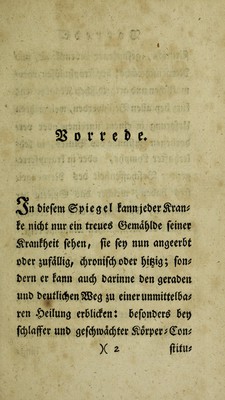 Vorrede.
In diesem Spiegel kann jeder Kran-
ke nicht nur ein treues Gemählde seiner
Krankheit sehen, sie sey nun angeerbt
oder zufällig, chronisch oder hitzig; son-
dern er kann auch darinne den geraden
und deutlichen Weg zu einer unmittelba-
ren Heilung erblicken: besonders bey
schlaffer und geschwächter Körper-Con-
)( 2 stitu-